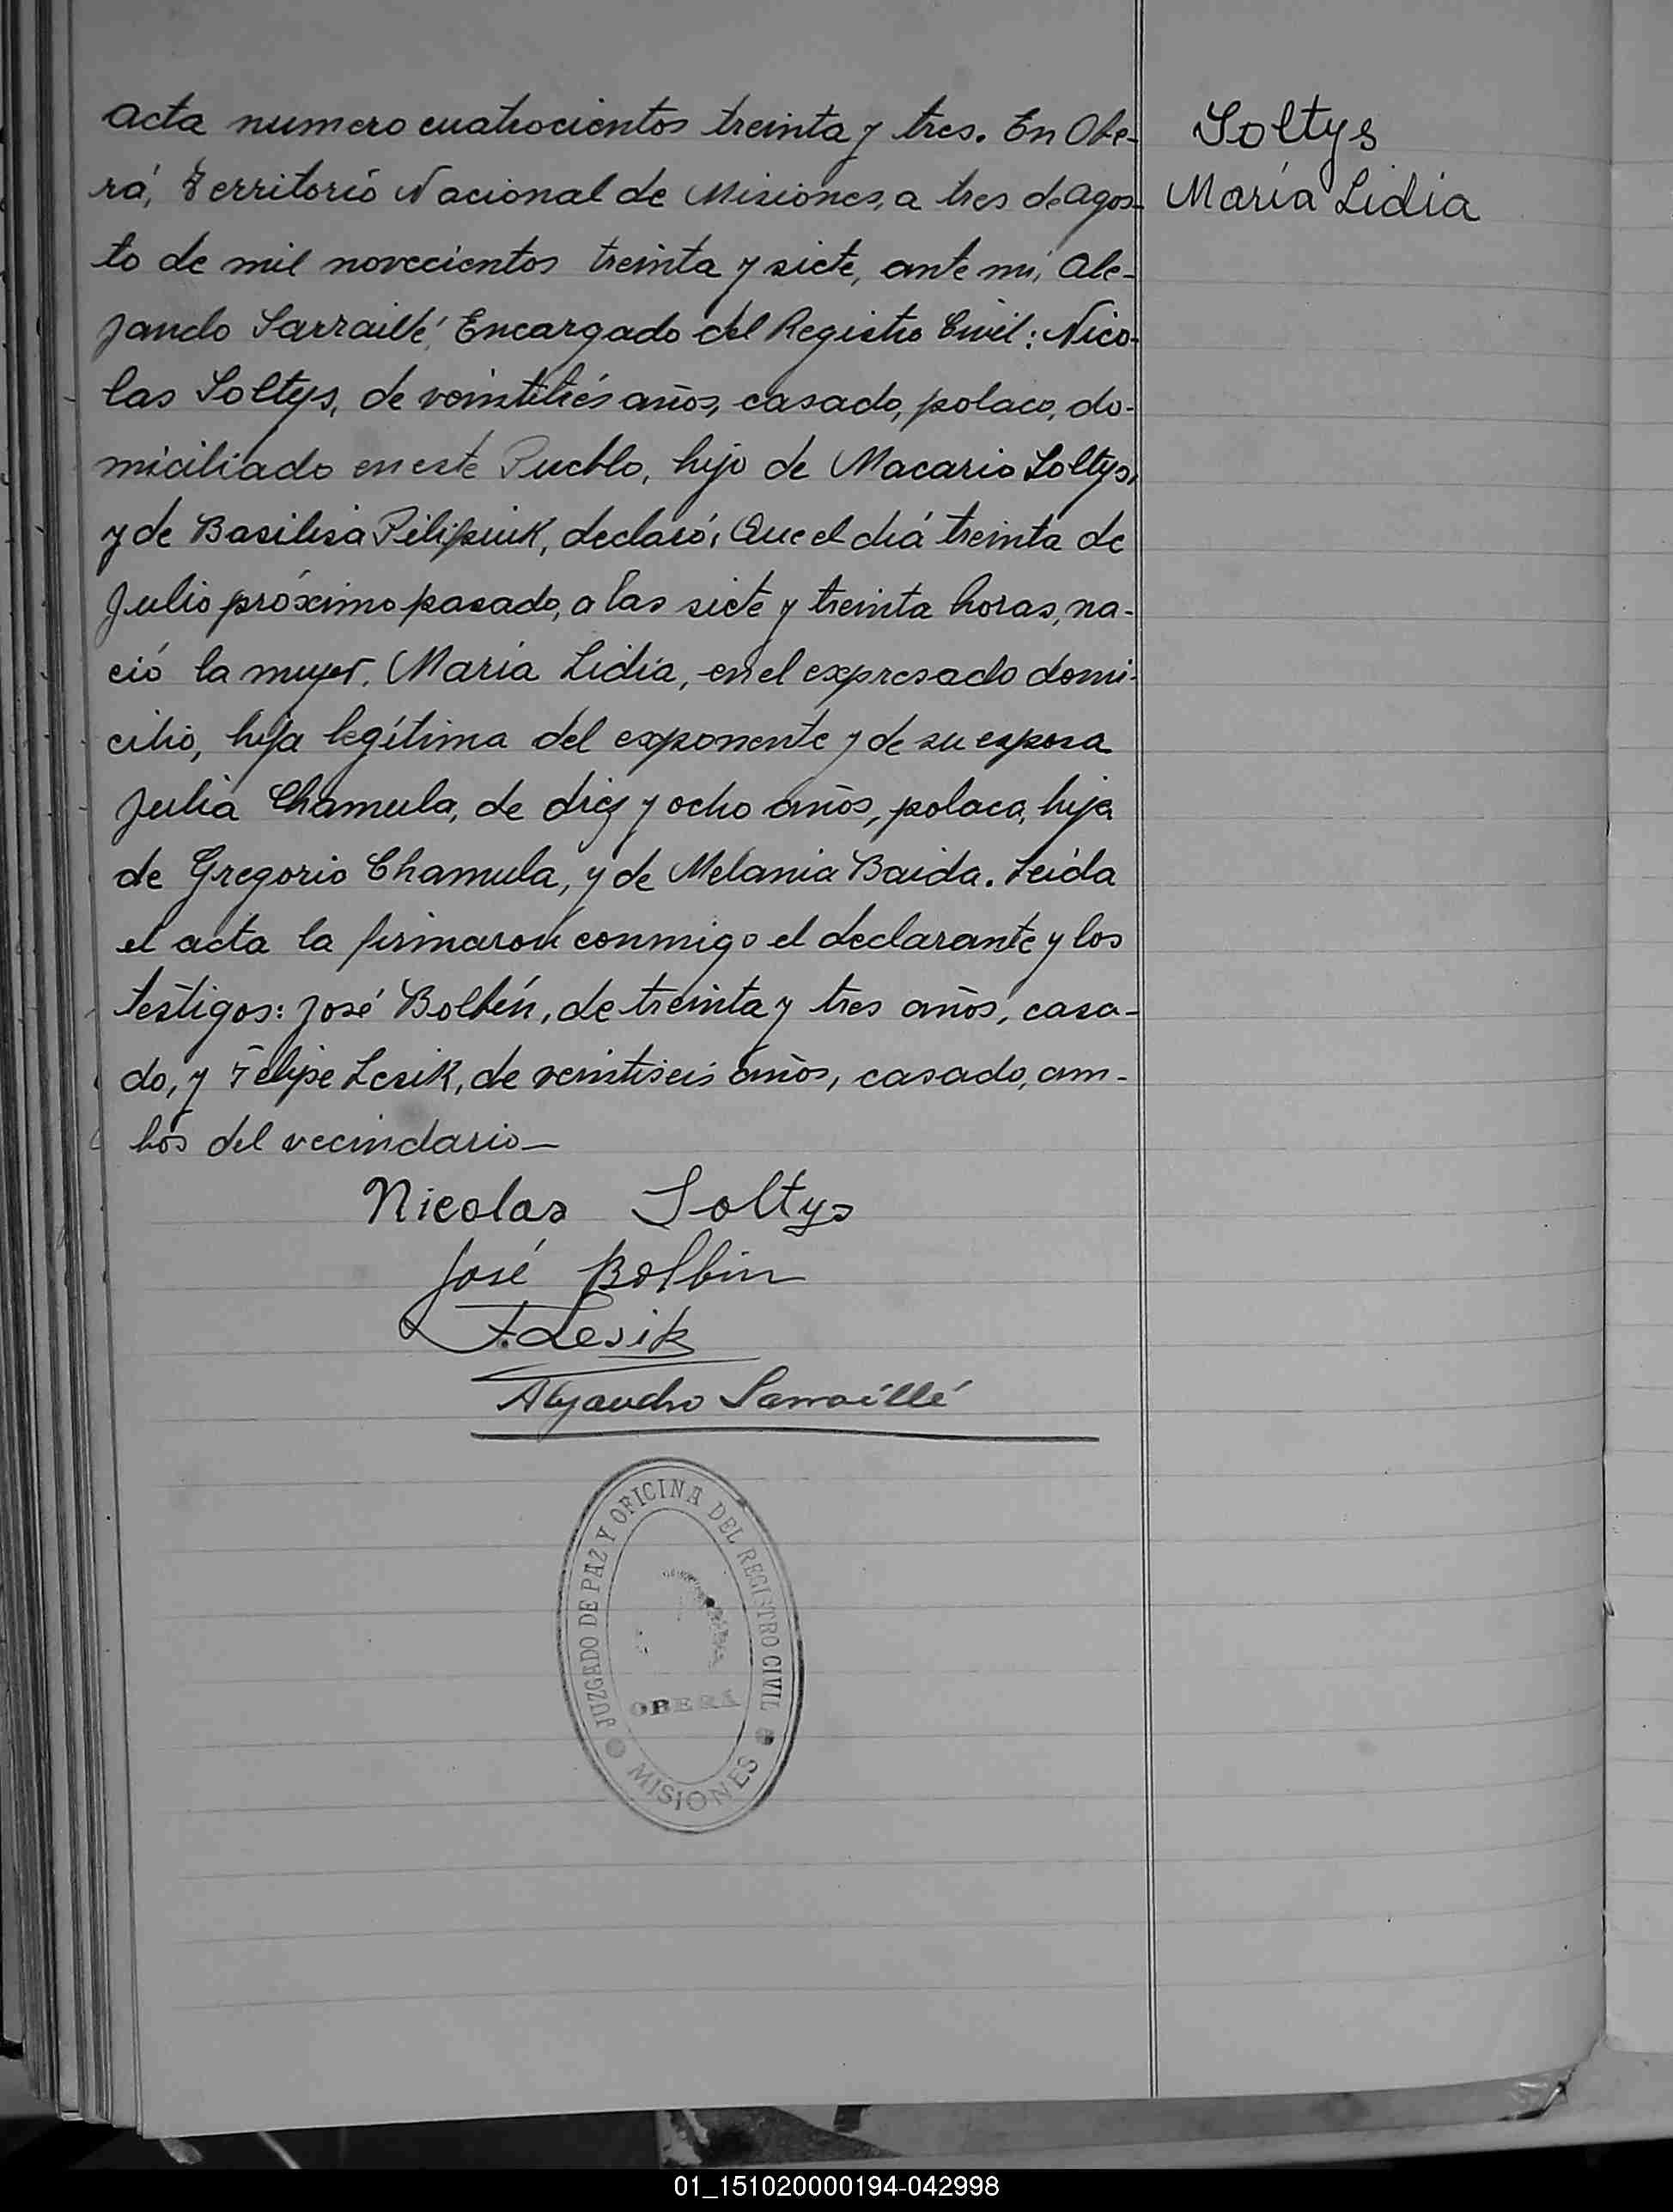 Acta numero cuatrocientos treinta y tres. En Obe-
rá, Territorio Nacional de Misiones, a tres de Agos-
to de mil novecientos treinta y siete, ante mí, Ale-
jando Sarraillé, Encargado del Registro Civil: Nico-
las Soltys, de veintitrés años, casado, polaco, do-
miciliado en este Pueblo, hijo de Macario Soltys,
y de Basilisa Pilipiuk, declaró: Que el día treinta de
Julio próximo pasado, a las siete y treinta horas, na-
ció la mujer, María Lidia, en el expresado domi-
cilio, hija legítima del exponente y de su esposa
Julia Chamula, de diez y ocho años, polaca, hija
de Gregorio Chamula, y de Melania Baida. Leída
el acta la firmaron conmigo el declarante y los
testigos: José Bolbín, de treinta y tres años, casa-
do, y Felipe Lesik, de veintiseis años, casado, am-
bos del vecindario—
Soltys
María Lidia
Nicolas Soltys
José Bolbin
F. Lesik
Alejandro Sarraillé
JUZGADO DE PAZ Y OFICINA DEL REGISTRO CIVIL
OBERÁ
MISIONES
01_151020000194-042998